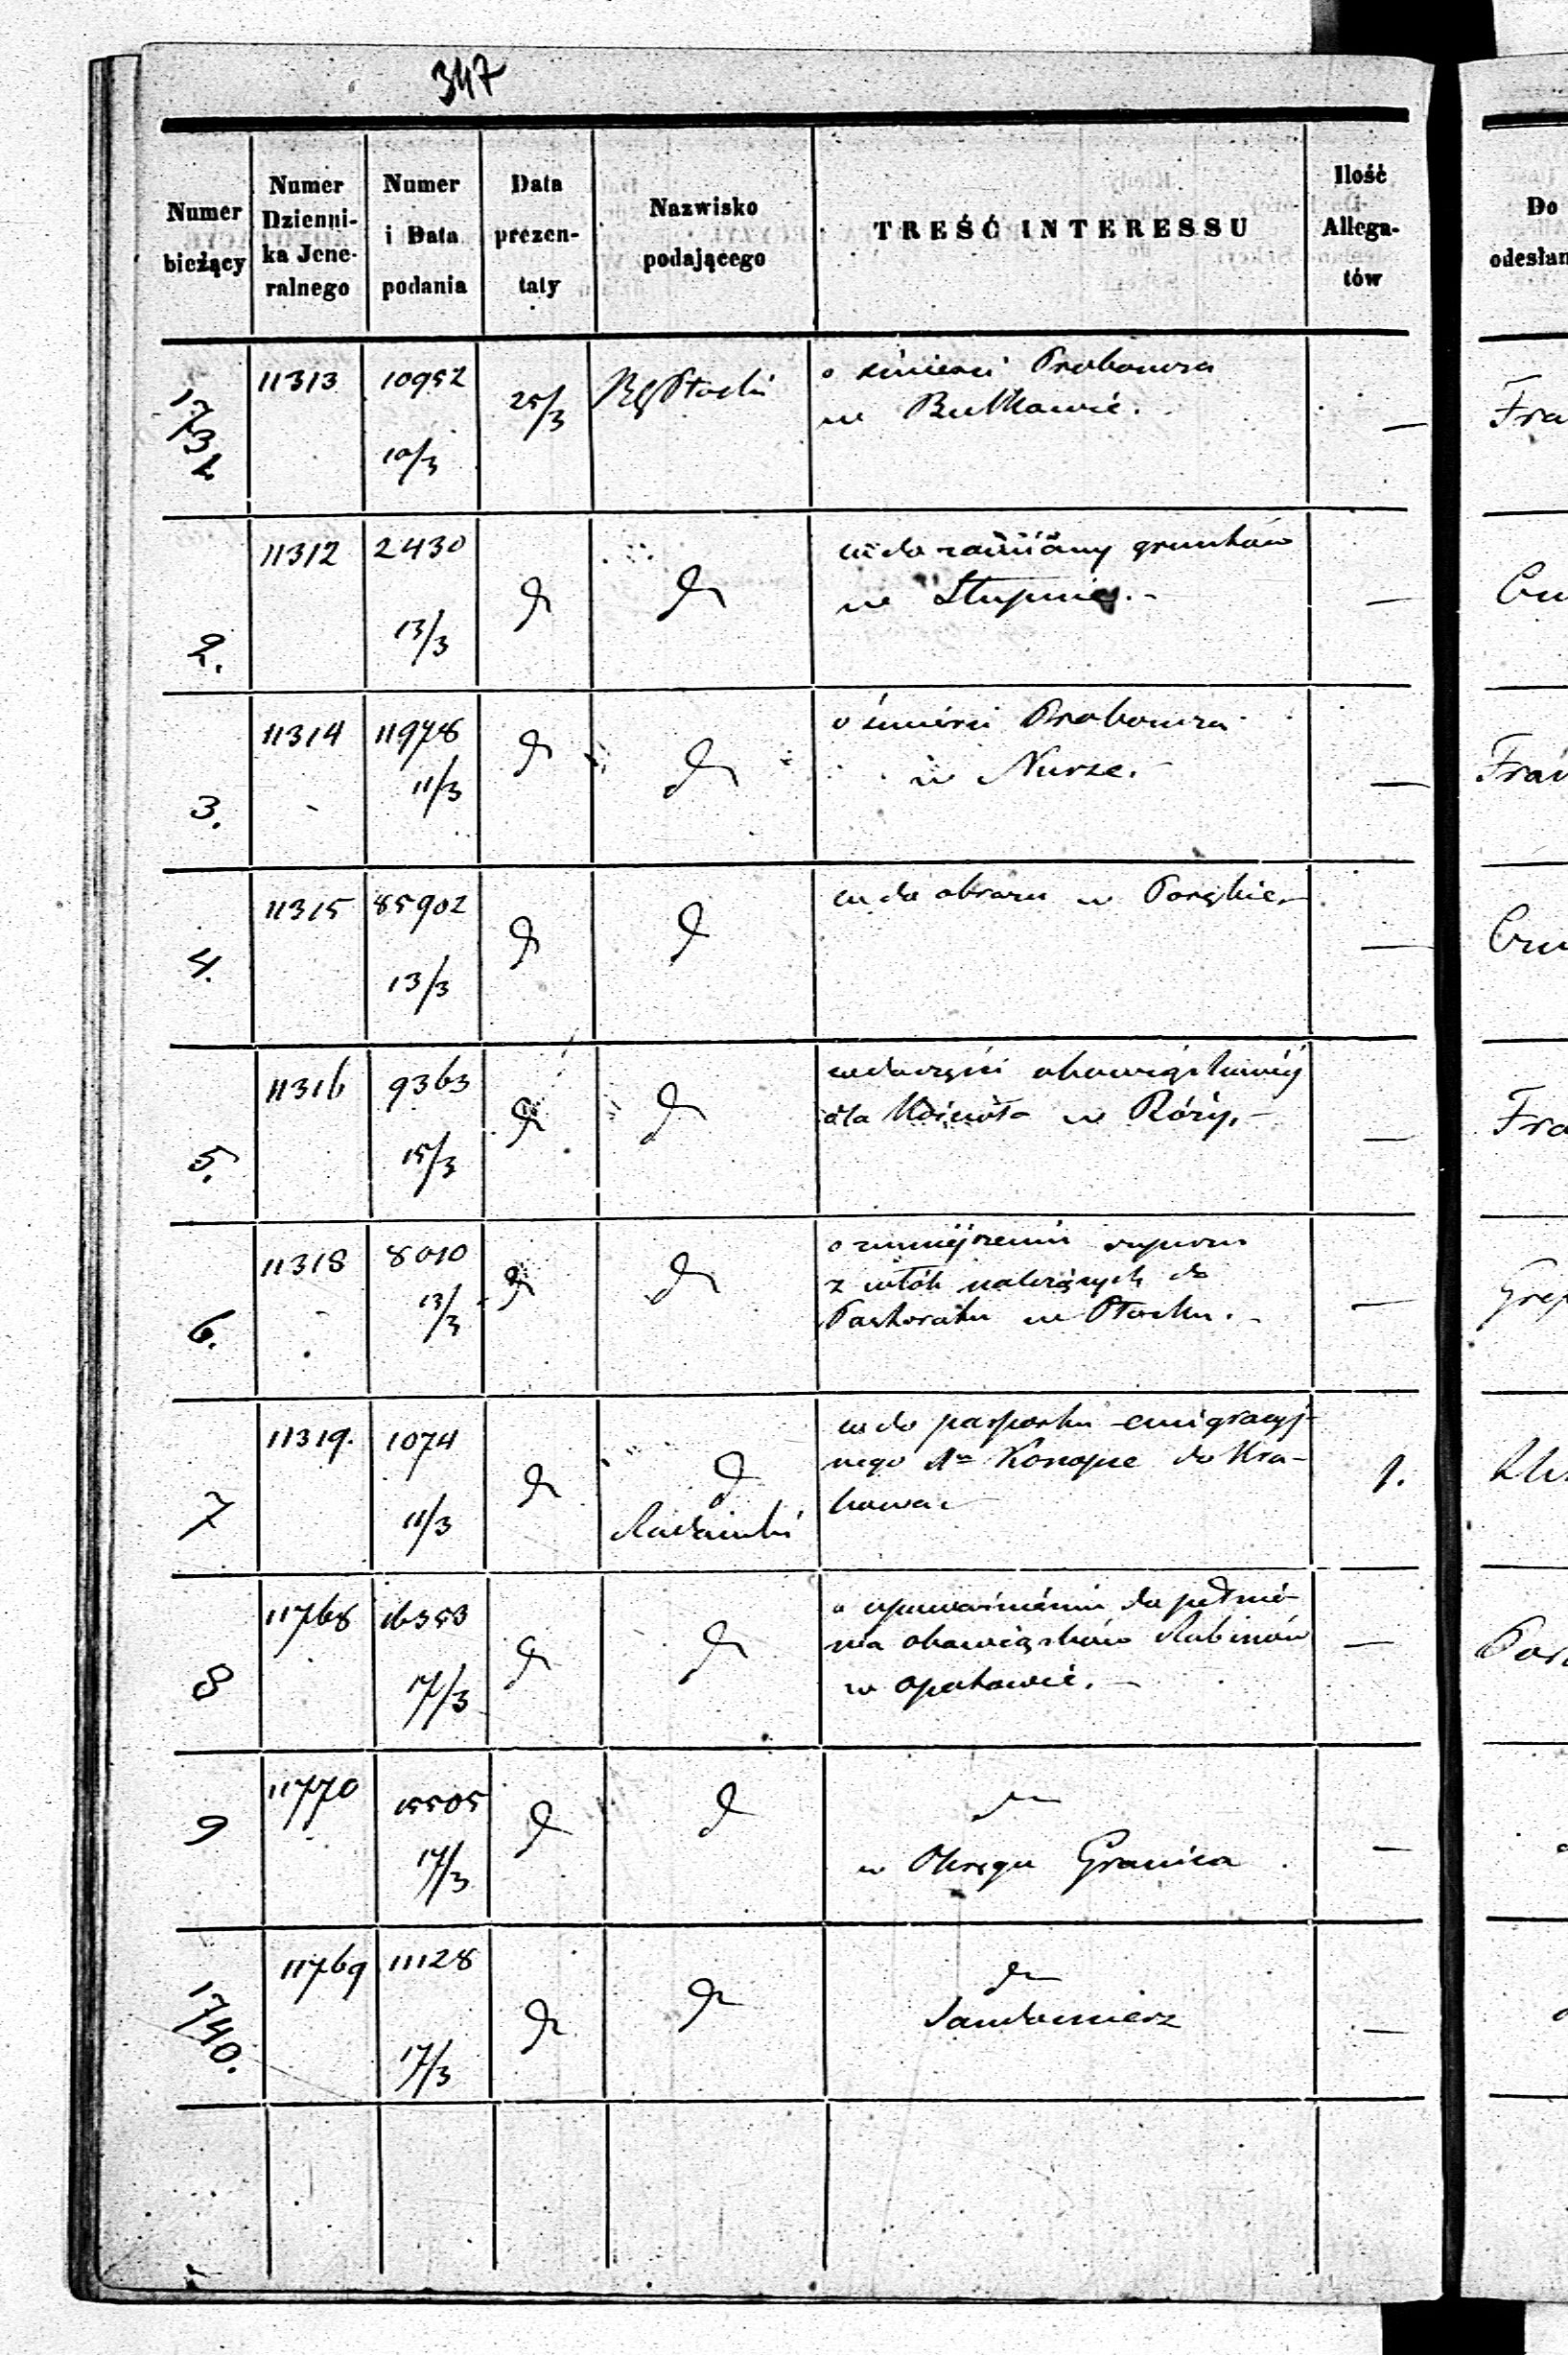 347
Numer bieżący | Numer Dzienni-ka Jene-ralnego | Numer i Data podania | Data prezen-taty | Nazwisko podającego | TREŚĆ INTERESSU | Ilość Allega-tów | Do odesłan
1731 | 11313 | 10952 10/3 | 25/3 | Płocki | o śmierci Proboszcza
w —
2. | 11312 | 2430 13/3 | d | d | co do zamiany gruntów
w Słupnie. | —
3. | 11314 | 11978 11/3 | d | d | o śmierci Proboszcza
w Nurze. | —
4. | 11315 | 85902 13/3 | d | d | co do obrazu w Porębie | —
5. | 11316 | 9363 15/3 | d | d | co do części
dla Kościoła w Róży. | —
6. | 11318 | 8010 13/3 | d | d | o zmniejszeniu
z włók należących do
Pastoratu w Płocku. | —
7 | 11319. | 1074 11/3 | d | d | co do paszportu emigracyj-
nego dla Konopie do Kra-
kowa | 1.
8 | 11768 | 16353 17/3 | d | d | o upoważnieniu do pełnie-
nia obowiązków Rabinów
w Opatowie. | —
9 | 11770 | 15505 17/3 | d | d | d
w Okręgu Granica | —
1740. | 11769 | 11128 17/3 | d | d | d
Sandomierz | —